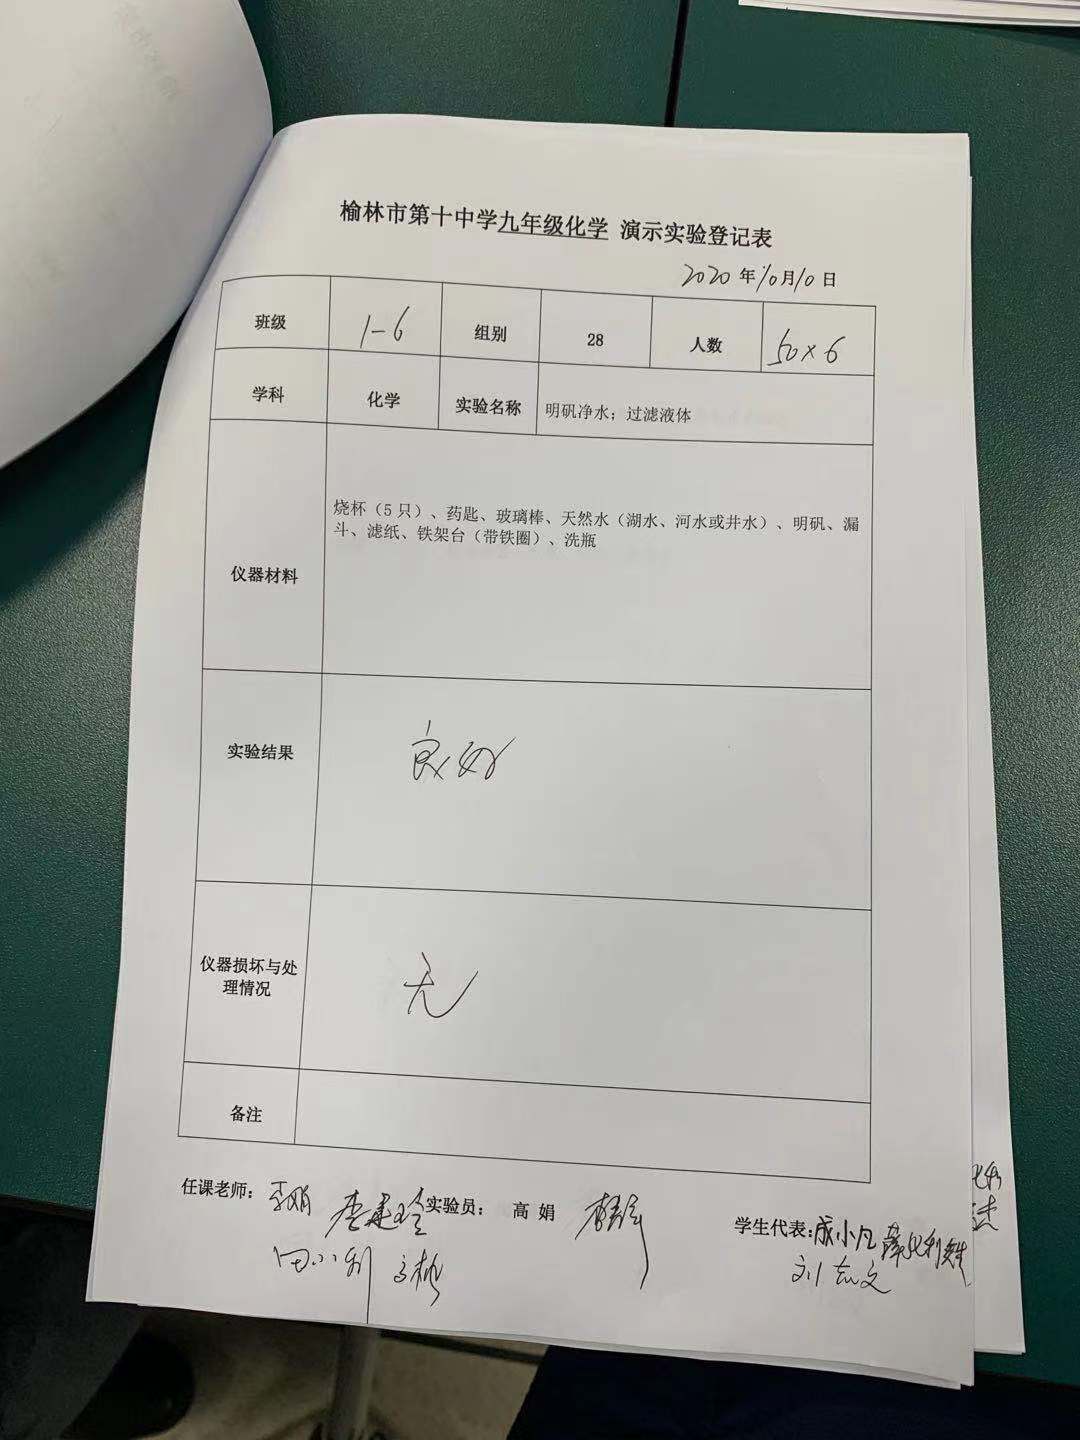 榆林市第十中学九年级化学 演示实验登记表
2020年10月10日
班级 1-6 组别 28 人数 50×6
学科 化学 实验名称 明矾净水；过滤液体
仪器材料 烧杯（5只）、药匙、玻璃棒、天然水（湖水、河水或井水）、明矾、漏
斗、滤纸、铁架台（带铁圈）、洗瓶
实验结果 良好
仪器损坏与处
理情况 无
备注
任课老师： 李建玲 实验员： 高娟 学生代表：成小凡
田小利 刘志文